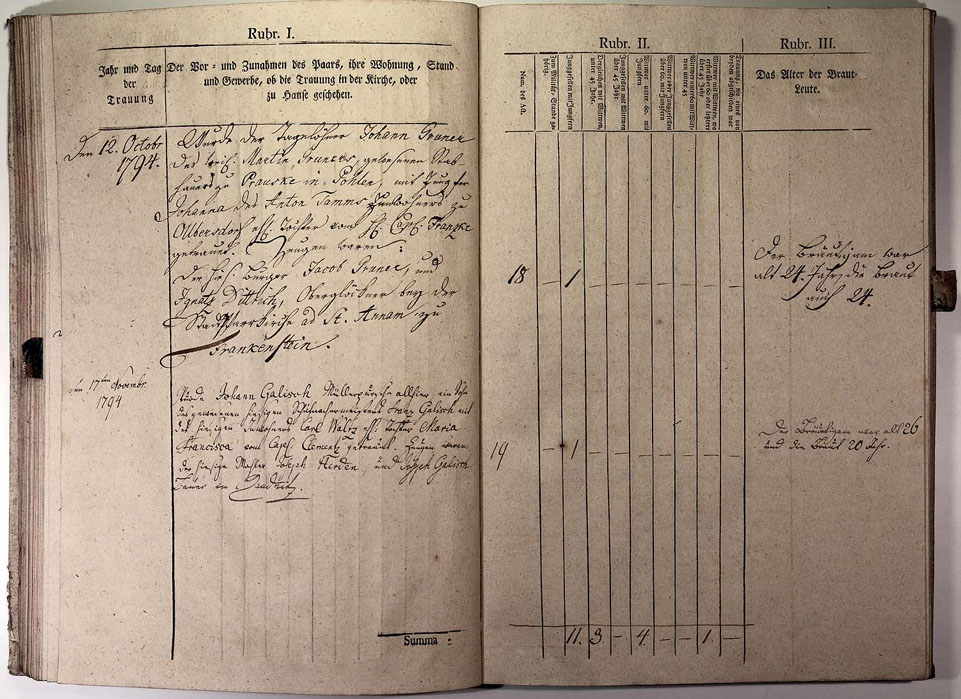 Rubr. I.
Jahr und Tag
der
Trauung
Der Vor- und Zunahmen des Paars, ihre Wohnung, Stand
und Gewerbe, ob die Trauung in der Kirche, oder
zu Hause geschehen.
Den 12. Octobr
1794.
Wurde der Tagelöhner Johann Pruner
des Martin Pruners, gewesenen
zu Prauske in Pohlen, mit Jungfer
Johanna des Anton Tamms zu
Olbersdorf Tochter vom Capl. Franzke
getraut. Zeugen waren:
Der Bürger Jacob Pruner, und
Ignatz Dittrich, Oberglöckner bey der
Stadtpfarrkirche ad St. Annam zu
Frankenstein.
den 17ten Novembr.
1794.
Wurde Johann Galisch allhier, ein Sohn
des gewesenen hiesigen Franz Galisch mit
des hiesigen Inwohners Carl Tochter Maria
Francisca vom Capl. getraut. Zeugen waren
der hiesige Joseph Herden, und Joseph Galisch
Bauer in
Summa :
Rubr. II.
Num. des Akt.
Zum Militär-Stande gehörig.
Junggesellen mit Jungfern
Dergleichen mit Wittwen, unter 45 Jahr.
Junggesellen mit Wittwen über 45 Jahr.
Wittwer unter 60. mit Jungfern
Wittwer oder Junggesellen über 60. mit Jungfern
Wittwer unter 60 mit Wittwen unter 45
Wittwer mit Wittwen, wo erstere über 60 oder letztere über 45 Jahr
Trauung, wo eines von beyden abgeschieden war
18 — 1 — — — — — — —
19 — 1 — — — — — — —
11. 3. — 4. — — 1. —
Rubr. III.
Das Alter der Braut-
Leute.
Der Bräutigam war
alt 24. Jahr, die Braut
auch 24.
Der Bräutigam war alt 26
und die Braut 20 Jahr.